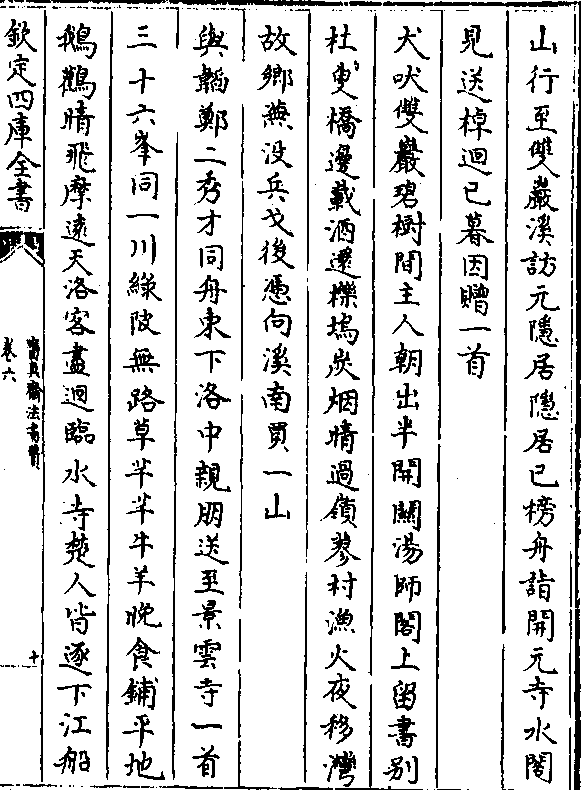 山行至雙巖溪訪元隱居隱居已榜舟詣開元寺水閣
見送棹迴已暮因贈一首
犬吠雙巖碧樹間主人朝出半開關湯師閣上留書别
杜叟橋邊載酒還櫟塢炭烟晴過嶺蓼村漁火夜移灣
故鄉蕪没兵戈後憑向溪南買一山
與韜鄭二秀才同舟東下洛中親朋送至景雲寺一首
三十六峯同一川綠陂無路草芊芊牛羊晚食鋪平地
鵝鸛晴飛摩遠天洛客盡迴臨水寺楚人皆逐下江船
欽定四庫全書
寶真齋法書贊
卷六
十